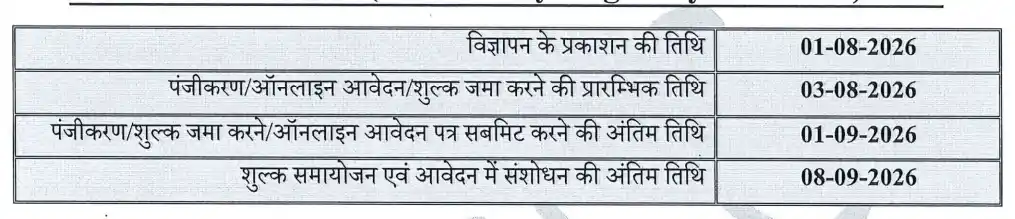 विज्ञापन के प्रकाशन की तिथि 01-08-2026
पंजीकरण/ऑनलाइन आवेदन/शुल्क जमा करने की प्रारम्भिक तिथि 03-08-2026
पंजीकरण/शुल्क जमा करने/ऑनलाइन आवेदन पत्र सबमिट करने की अंतिम तिथि 01-09-2026
शुल्क समायोजन एवं आवेदन में संशोधन की अंतिम तिथि 08-09-2026